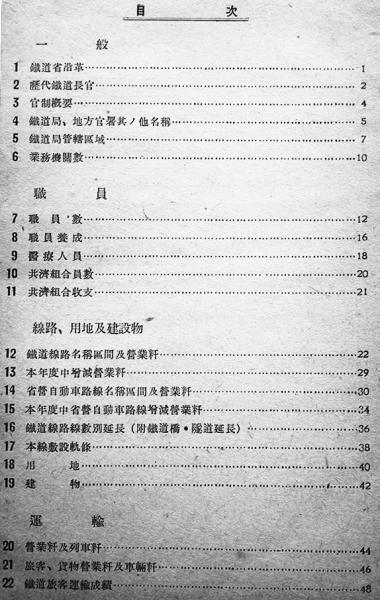 目 次
一 般
1 鐵道省沿革 1
2 歷代鐵道長官 2
3 官制概要 4
4 鐵道局、地方官署其ノ他名稱 5
5 鐵道局管轄區域 7
6 業務機關數 10
職 員
7 職員數 12
8 職員養成 16
9 醫療人員 18
10 共濟組合員數 20
11 共濟組合收支 21
線路、用地及建設物
12 鐵道線路名稱區間及營業粁 22
13 本年度中增減營業粁 29
14 省營自動車路線名稱區間及營業粁 30
15 本年度中省營自動車路線增減營業粁 34
16 鐵道線路線數別延長（附鐵道橋・隧道延長） 36
17 本線敷設軌條 38
18 用 地 40
19 建 物 42
運 輸
20 營業粁及列車粁 44
21 旅客、貨物營業粁及車輛粁 46
22 鐵道旅客運輸成績 48